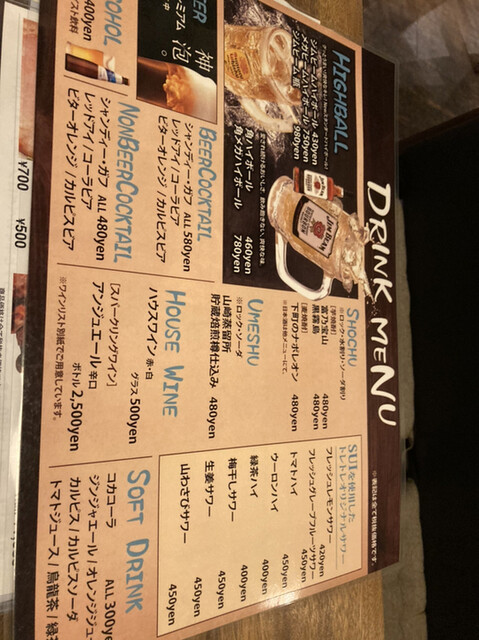 DRINK MENU
※表記は全て税抜価格です。
HIGHBALL
ジムビームハイボール 430yen
メガジムビームハイボール 750yen
ジムビーム 瓶 980yen
角ハイボール 460yen
角メガハイボール 780yen
SHOCHU
※ロック・水割り・ソーダ割り
[芋焼酎]
富乃宝山 480yen
黒霧島 480yen
[麦焼酎]
下町のナポレオン 480yen
※日本酒は他メニューにて。
SUIを使用した
トレトレオリジナルサワー
フレッシュレモンサワー 420yen
フレッシュグレープフルーツサワー 450yen
トマトハイ 450yen
ウーロンハイ 400yen
緑茶ハイ 400yen
梅干しサワー 450yen
生姜サワー 450yen
山わさびサワー 450yen
BEER
神泡。
BEERCOCKTAIL
シャンディー・ガフ ALL 580yen
レッドアイ / コーラビア
ビターオレンジ / カルピスビア
UMESHU
※ロック・ソーダ
山崎蒸留所
貯蔵焙煎樽仕込み 480yen
400yen
NONBEERCOCKTAIL
シャンディー・ガフ ALL 480yen
レッドアイ / コーラビア
ビターオレンジ / カルピスビア
HOUSE WINE
ハウスワイン 赤・白
グラス 500yen
[スパークリングワイン]
アンジュエール 辛口
ボトル 2,500yen
※ワインリスト別紙でご用意しています。
SOFT DRINK
ALL 300ye
コカコーラ
ジンジャエール / オレンジジュ
カルピス / カルピスソーダ
トマトジュース / 烏龍茶 / 緑
¥700
¥500